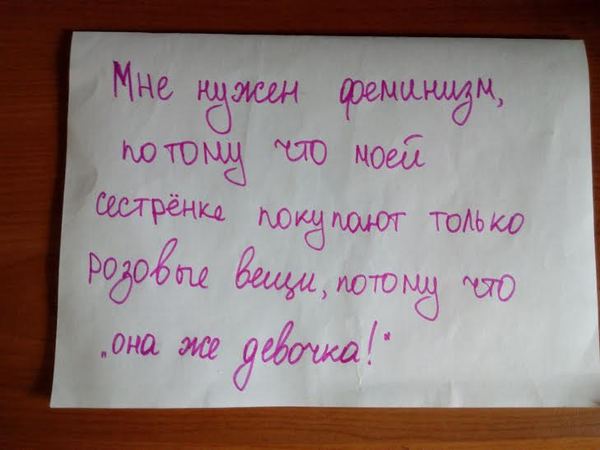 Мне нужен феминизм,
потому что моей
сестрёнке покупают только
розовые вещи, потому что
„она же девочка!"